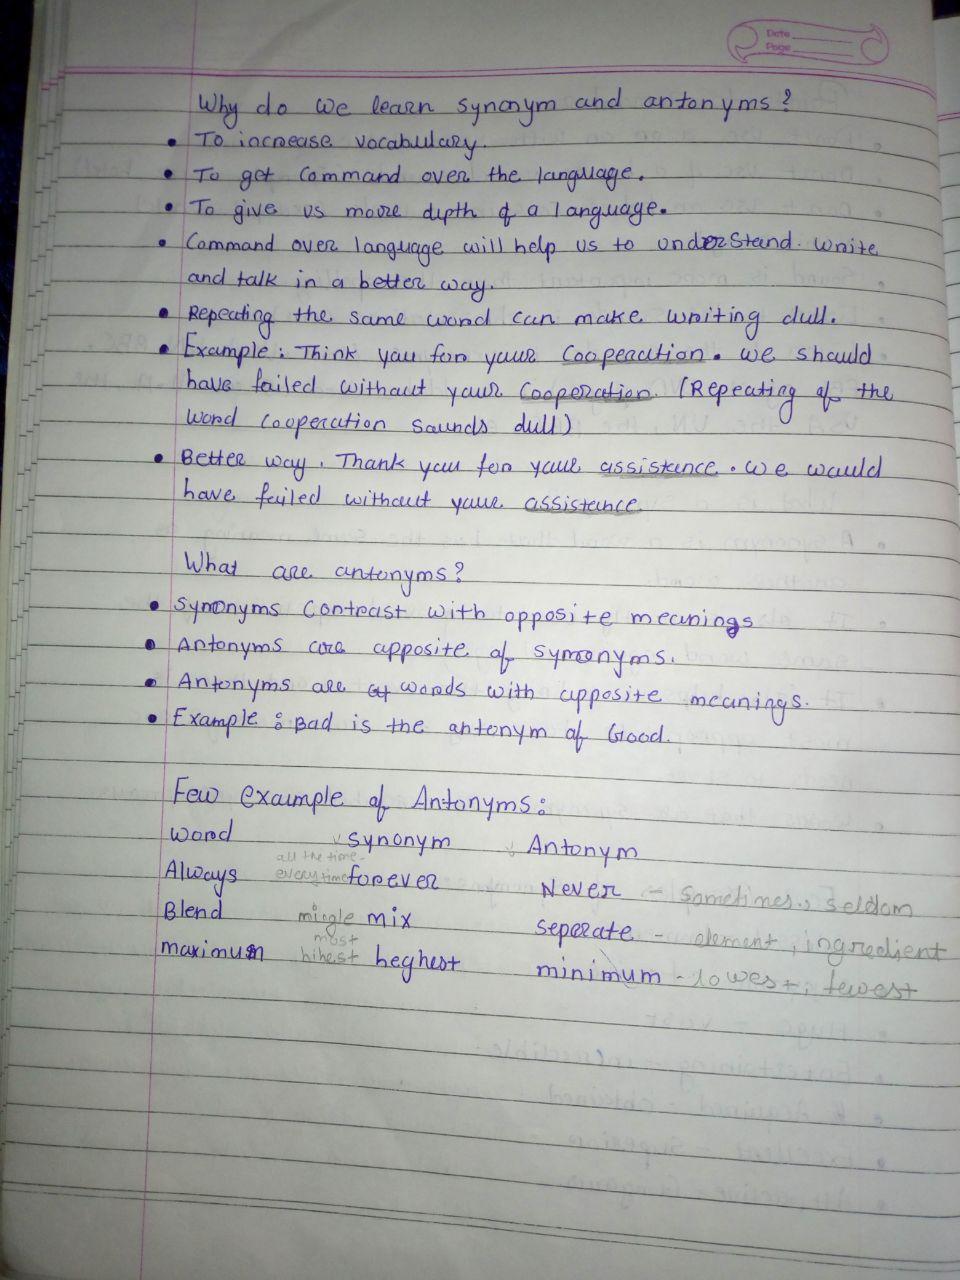 Date
Page
Why do we learn synonym and antonyms?
• To increase vocabulary.
• To get Command over the language.
• To give us moore depth of a language.
• Command over language will help us to understand. write
and talk in a better way.
• Repeating the same word can make writing dull.
• Example : Think you for your Cooperation. We should
have failed without your Cooperation. (Repeating of the
word Cooperation sounds dull)
• Better way. Thank you for your assistance. We would
have failed without your assistance.
What are antonyms?
• Synonyms Contrast with opposite meanings
• Antonyms are opposite of Symonyms.
• Antonyms are words with opposite meanings.
• Example : Bad is the antonym of Good.
Few example of Antonyms :
word synonym Antonym
all the time
Always everytime forever Never - Sometimes, seldom
Blend mingle mix seperate - element, ingredient
most
maximum hihest heghest minimum - lowest, fewest